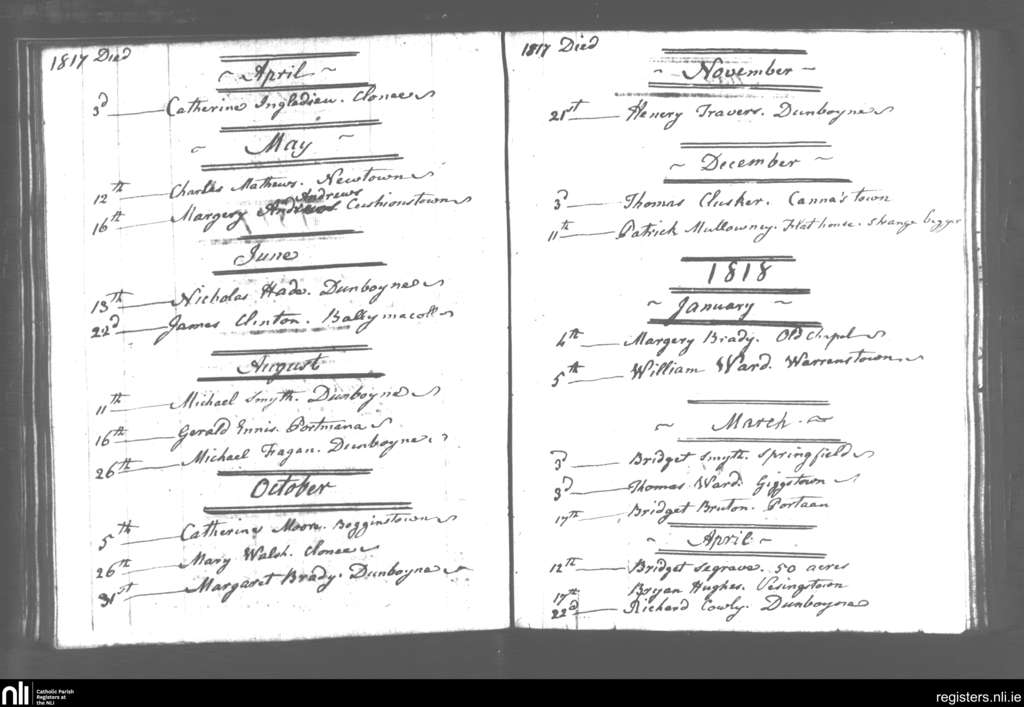 1817 Died
~ April ~
3d Catherine Ingledieu. Clonee
~ May ~
12th Charles Mathews. Newtown
Andrews
16th Margery Andrews Cushionstown
June
13th Nicholas Hade. Dunboyne
22d James Clinton. Ballymacoll
August
11th Michael Smyth. Dunboyne
16th Gerald Ennis. Portmana
26th Michael Fagan. Dunboyne
October
5th Catherine Moore. Begginstown
26th Mary Walsh. Clonee
31st Margaret Brady. Dunboyne
1817 Died
~ November ~
21st Henery Travers. Dunboyne
~ December ~
3d Thomas Clusker. Canna's town
11th Patrick Mullowney. Flat house. Strange beggr
1818
~ January ~
4th Margery Brady. Old Chapel
5th William Ward. Warranstown
~ March ~
3d Bridget Smyth. Springfield
3d Thomas Ward. Giggstown
17th Bridget Bruton. Portaan
~ April ~
12th Bridget Segrave. 50 acres
17th Bryan Hughes. Vesingstown
22d Richard Cowly. Dunboyne
nli Catholic Parish
Registers at
the NLI
registers.nli.ie